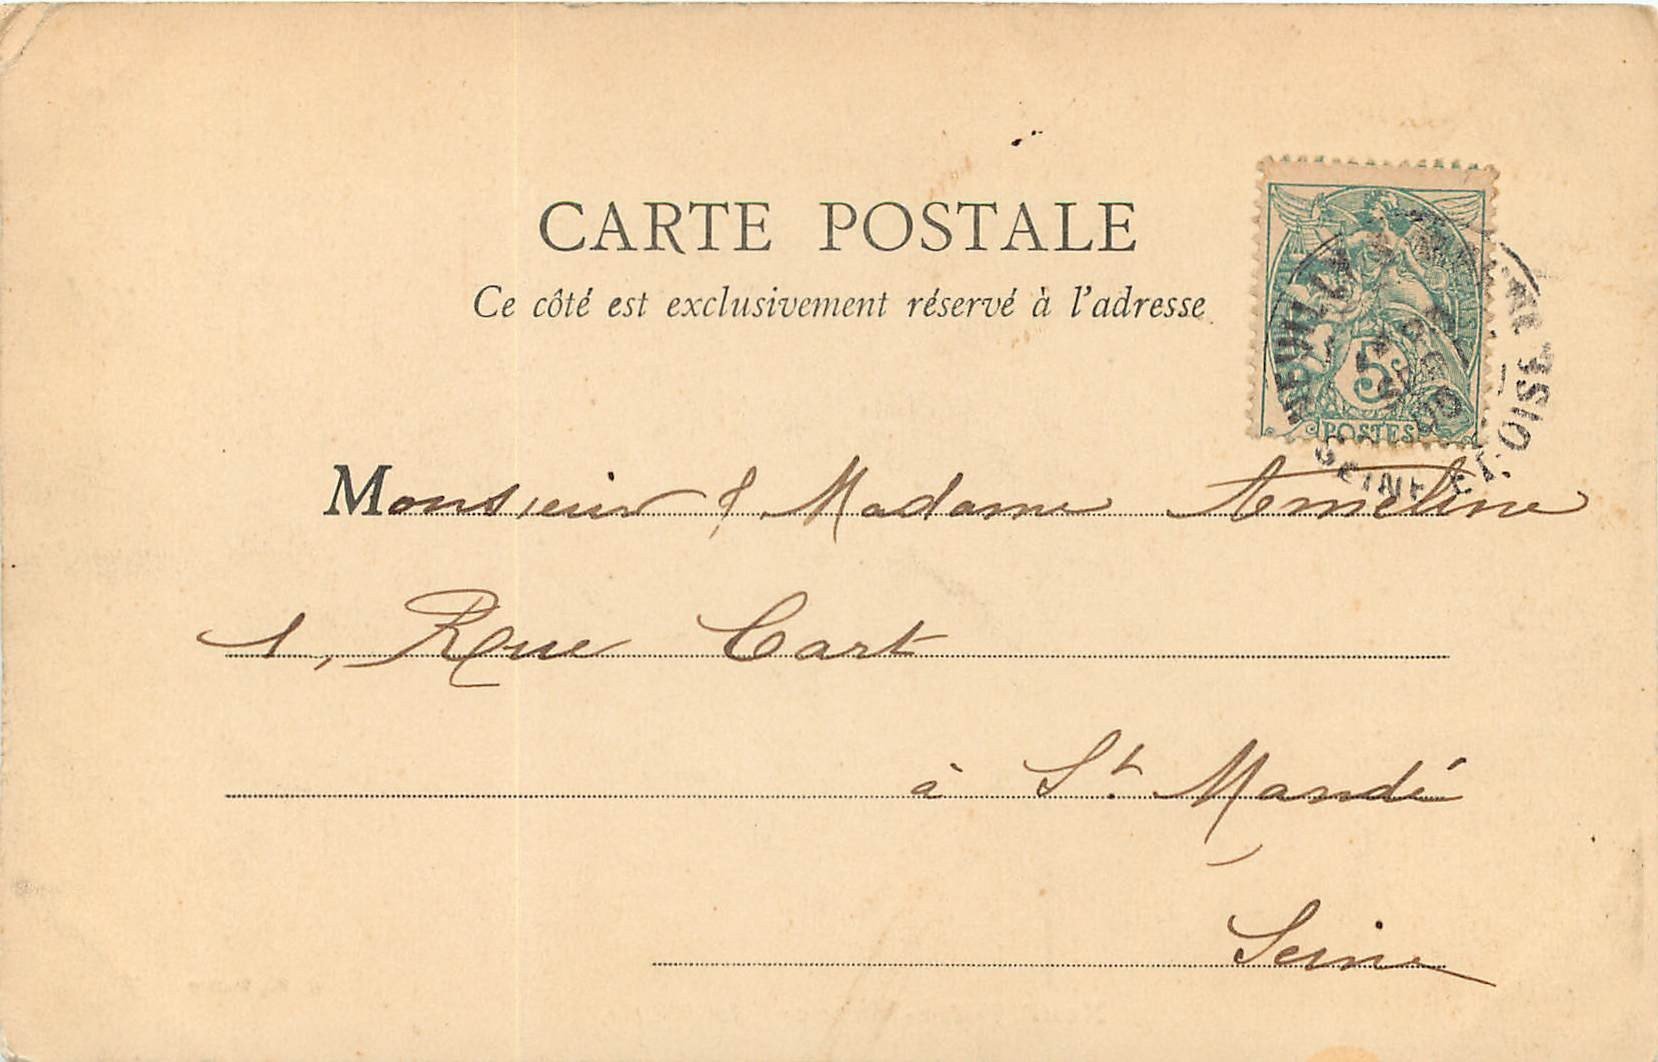 CARTE POSTALE
Ce côté est exclusivement réservé à l'adresse
5
POSTES
SEINE ET OISE
Monsieur & Madame Ameline
1, Rue Cart
à St. Mandé
Seine